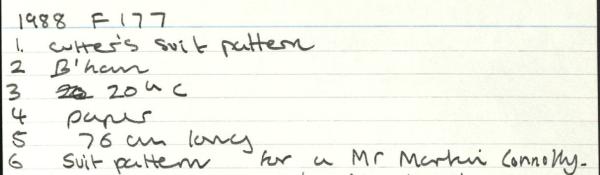 1988 F 177
1. cutter's suit pattern
2 B'ham
3 20th C
4 paper
5 76 cm long
6 Suit pattern for a Mr Martin Connolly.